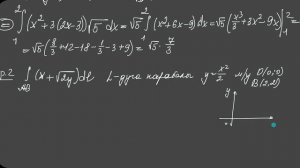 = ∫₁² (x²+3(2x-3))√5 dx = √5 ∫₁² (x²+6x-9)dx = √5 (x³/3 + 3x² - 9x) |₁² =
= √5 (8/3 + 12 - 18 - 1/3 - 3 + 9) = √5 · 7/3
р.2 ∫_AB (x+√2y)dl L-дуга параболы y = x²/2 м/у O(0;0)
B(2;2)
y